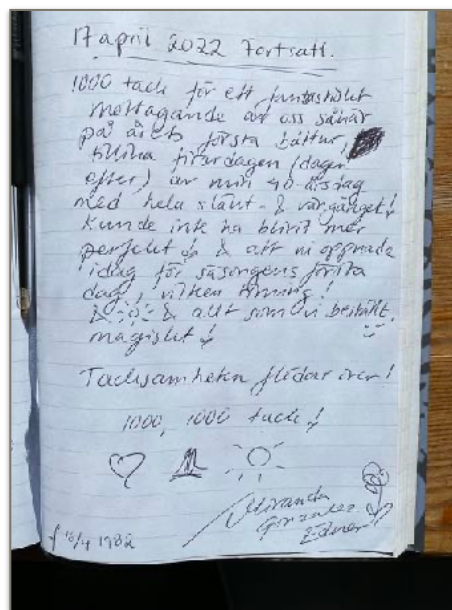 17 april 2022 Fortsätt.
1000 tack för ett fantastiskt
mottagande av oss såhär
på årets första båttur,
tillika firardagen (dagen
efter) av min 40-årsdag
med hela släkt- & vängänget!
Kunde inte ha blivit mer
perfekt! & att ni öppnade
idag för säsongens första
dag, vilken timing!
& & allt som vi beställt.
magiskt!
Tacksamheten flödar över!
1000, 1000 tack!
Miranda
Gonzalez
f 16/4 1982